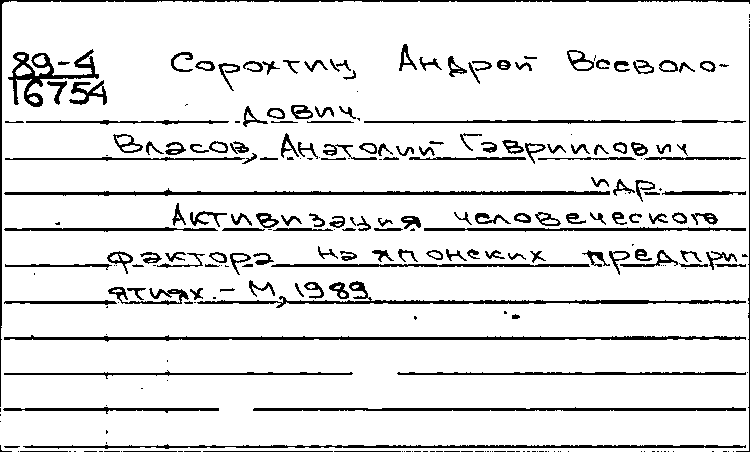 89-4 Сорохтин, Андрей Всеволо-
16754
дович
Власов, Анатолий Гавриилович
и др.
Активизация человеческого
фактора на японских предпри-
ятиях. - М, 1989